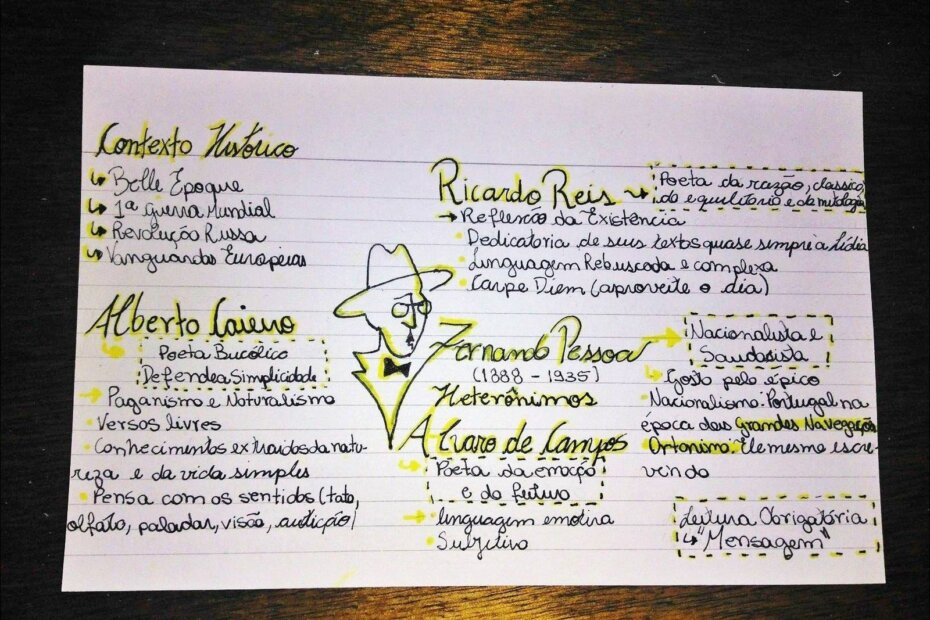 Contexto Histórico
Belle Époque
1ª Guerra Mundial
Revolução Russa
Vanguardas Europeias
Alberto Caieiro
Poeta Bucólico
Defende a Simplicidade
Paganismo e Naturalismo
Versos livres
Conhecimentos extraídos da natu-
reza e da vida simples
Pensa com os sentidos (tato,
olfato, paladar, visão, audição)
Ricardo Reis
Poeta da razão, classico,
do equilibrio e da mitologia
Reflexão da Existência
Dedicatoria de seus textos quase sempre à Lídia
Linguagem Rebuscada e complexa
Carpe Diem (aproveite o dia)
Fernando Pessoa
(1888 - 1935)
Heterônimos
Nacionalista e
Saudosista
Gosto pelo épico
Nacionalismo: Portugal na
época das Grandes Navegações
Ortonimo: Ele mesmo escre-
vendo
Alvaro de Campos
Poeta da emoção
e do futuro
linguagem emotiva
Subjetivo
Leitura Obrigatória
"Mensagem"